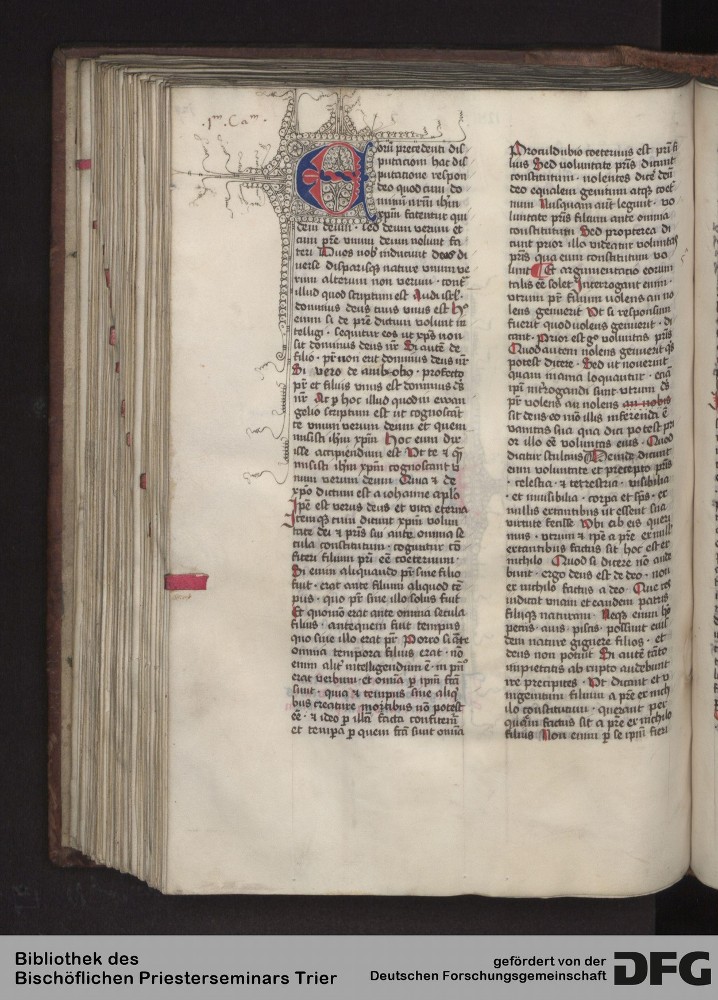 .1ᵐ. Caᵐ.
Eorū precedenti dis
putationi hac dis
putatione respon
deo quod cum do
minū nrm̄ ihm
xpm̄ fatentur qui
dem deum . sed deum verum et
cum pr̄e vnum deum nolunt fa
teri Duos nob̄ inducunt deos di
uerse disparisq̄ nature vnum ve
rum alterum non verum . cont̄
illud quod scriptum est Audi isrl̄ .
dominus deus tuus vnus est Hᵒ
enim si de pr̄e dictum volunt in
telligi . sequitur eos ut xp̄s non
sit dominus deus nr̄ Si autē de
filio . pr̄ non erit dominus deus nr̄
Si vero de ambobo . profecto
pr̄ et filius vnus est dominus ds̄
nr̄ At p hoc illud quod in ewan
gelio scriptum est ut cognoscāt
te vnum verum deum et quem
misisti ihm̄ xpm̄ Hoc enim dix
isse accipiendum est Vt te & q̄
misisti ihm̄ xpm̄ cognoscant v
num verum deum Quia & de
xp̄o dictum est a iohanne ap̄lo
Ipse est verus deus et vita eterna
Itemq̄ cum dicunt xpm̄ volun
tate dei & pr̄is sui ante omnia se
cula constitutum . coguntur co
fiteri filium pr̄i eē coeternum .
Si enim aliquando pr̄ sine filio
fuit . erat ante filium aliquod tē
pus . quo pr̄ sine illo solus fuit
Et quomō erat ante omnia secula
filius . antequem fuit tempus
quo sine illo erat pr̄ Porro si ante
omnia tempora filius erat . nō
enim alit̄ intelligendum ē . in pn̄
erat verbum . et omīa p ipm̄ fcā
sunt . quia & tempus sine aliqᵇ
bus creature motibus nō potest
eē . & ideo p illū facta confitem̄
et tempa p quem fcā sunt omīa
Proculdubio coeternus est pr̄i fi
lius Sed voluntate pr̄is dicunt
constitutum . nolentes dicē deū
deo equalem genitum atq̄ coet̄
num Nusquam aut̄ legunt . vo
luntate pr̄is filium ante omnia
constitutum Sed propterea di
cunt prior illo videatur voluntas
pr̄is qua eum constitutum vo
lunt Et argumentatio eorum
talis eē solet Interrogant enim .
vtrum pr̄ filium uolens an no
lens genuerit Vt si responsum
fuerit quod uolens genuerit . di
cant Prior est gᵒ voluntas pr̄is
Quod autem nolens genuerit q̄s
potest dicere . Sed ut nouerint
quam inania loquantur . etiā
ipī īterrogandi sunt vtrum ds̄
pr̄ volens an nolens an nobis
sit deus eo mō illis inferenda ē
vanitas sua qua dici potest pri
or illo eē voluntas eius . Quod
dicatur stultius Deinde dicunt
eum voluntate et precepto pr̄is
. celestia . & terrestria . visibilia
. et inuisibilia . corpa et sp̄s . ex
nullis extantibus ut essent sua
virtute fecisse Vbi ab eis queri
mus . vtrum & ipse a pr̄e ex null
extantibus factus sit hoc est ex
nichilo Quod si dicere nō aude
bunt . ergo deus est de deo . non
ex nichilo factus a deo . Que res
indicat vnam et eandem patris
filiiq̄ naturam . Neq̄ enim hō
pecus auis . piscis . possunt eius
dem nature gignere filios . et
deus non potuit Si autē tāto
impietatis abrupto audebunt
ire precipites . Vt dicant et v
nigenitum filium a pr̄e ex nich
ilo constitutum . querant per
quem factus sit a pr̄e ex nichilo
filius Non enim p se ipm̄ fieri
Bibliothek des
Bischöflichen Priesterseminars Trier
gefördert von der
Deutschen Forschungsgemeinschaft
DFG